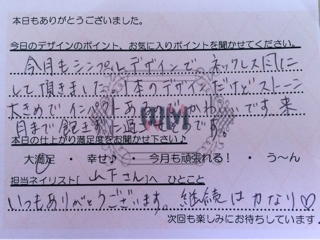 本日もありがとうございました。
今日のデザインのポイント、お気に入りポイントを聞かせてください。
今月もシンプルデザインで ネックレス風に
して頂きました。1本のデザインだけどストーン
大きめでインパクトあるのでかわいいです 来
月まで飽きずに過ごせそうです
本日の仕上がり満足度をお聞かせ下さい♪
大満足 ・ 幸せ♪ ・ 今月も頑張れる! ・ う〜ん
担当ネイリスト[ 山下さん ]へ ひとこと
いつもありがとうございます。継続は力なり♡
次回も楽しみにお待ちしています